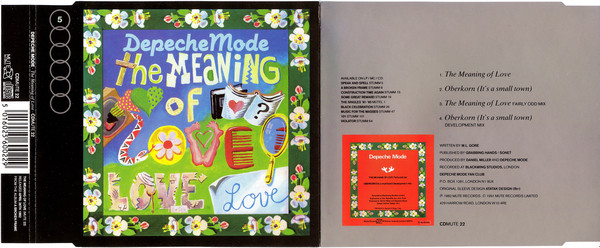 5
DEPECHE MODE The Meaning of Love CDMUTE 22
CDMUTE 22
MUTE
5 016025 600229
Depeche Mode
the MEANING
of ?
LOVE
LOVE Love
AVAILABLE ON LP / MC / CD
SPEAK AND SPELL STUMM 5
A BROKEN FRAME STUMM 9
CONSTRUCTION TIME AGAIN STUMM 13
SOME GREAT REWARD STUMM 19
THE SINGLES 81-85 MUTEL 1
BLACK CELEBRATION STUMM 26
MUSIC FOR THE MASSES STUMM 47
101 STUMM 101
VIOLATOR STUMM 64
Depeche Mode
1. The Meaning of Love
2. Oberkorn (It's a small town)
3. The Meaning of Love FAIRLY ODD MIX
4. Oberkorn (It's a small town)
DEVELOPMENT MIX
WRITTEN BY M.L. GORE
PUBLISHED BY GRABBING HANDS / SONET
PRODUCED BY DANIEL MILLER AND DEPECHE MODE
RECORDED AT BLACKWING STUDIOS, LONDON
DEPECHE MODE FAN CLUB
P.O. BOX 1281, LONDON N1
ORIGINAL SLEEVE DESIGN
MUTE RECORDS LIMITED
429 HARROW ROAD, LONDON W10 4RE
CDMUTE 22